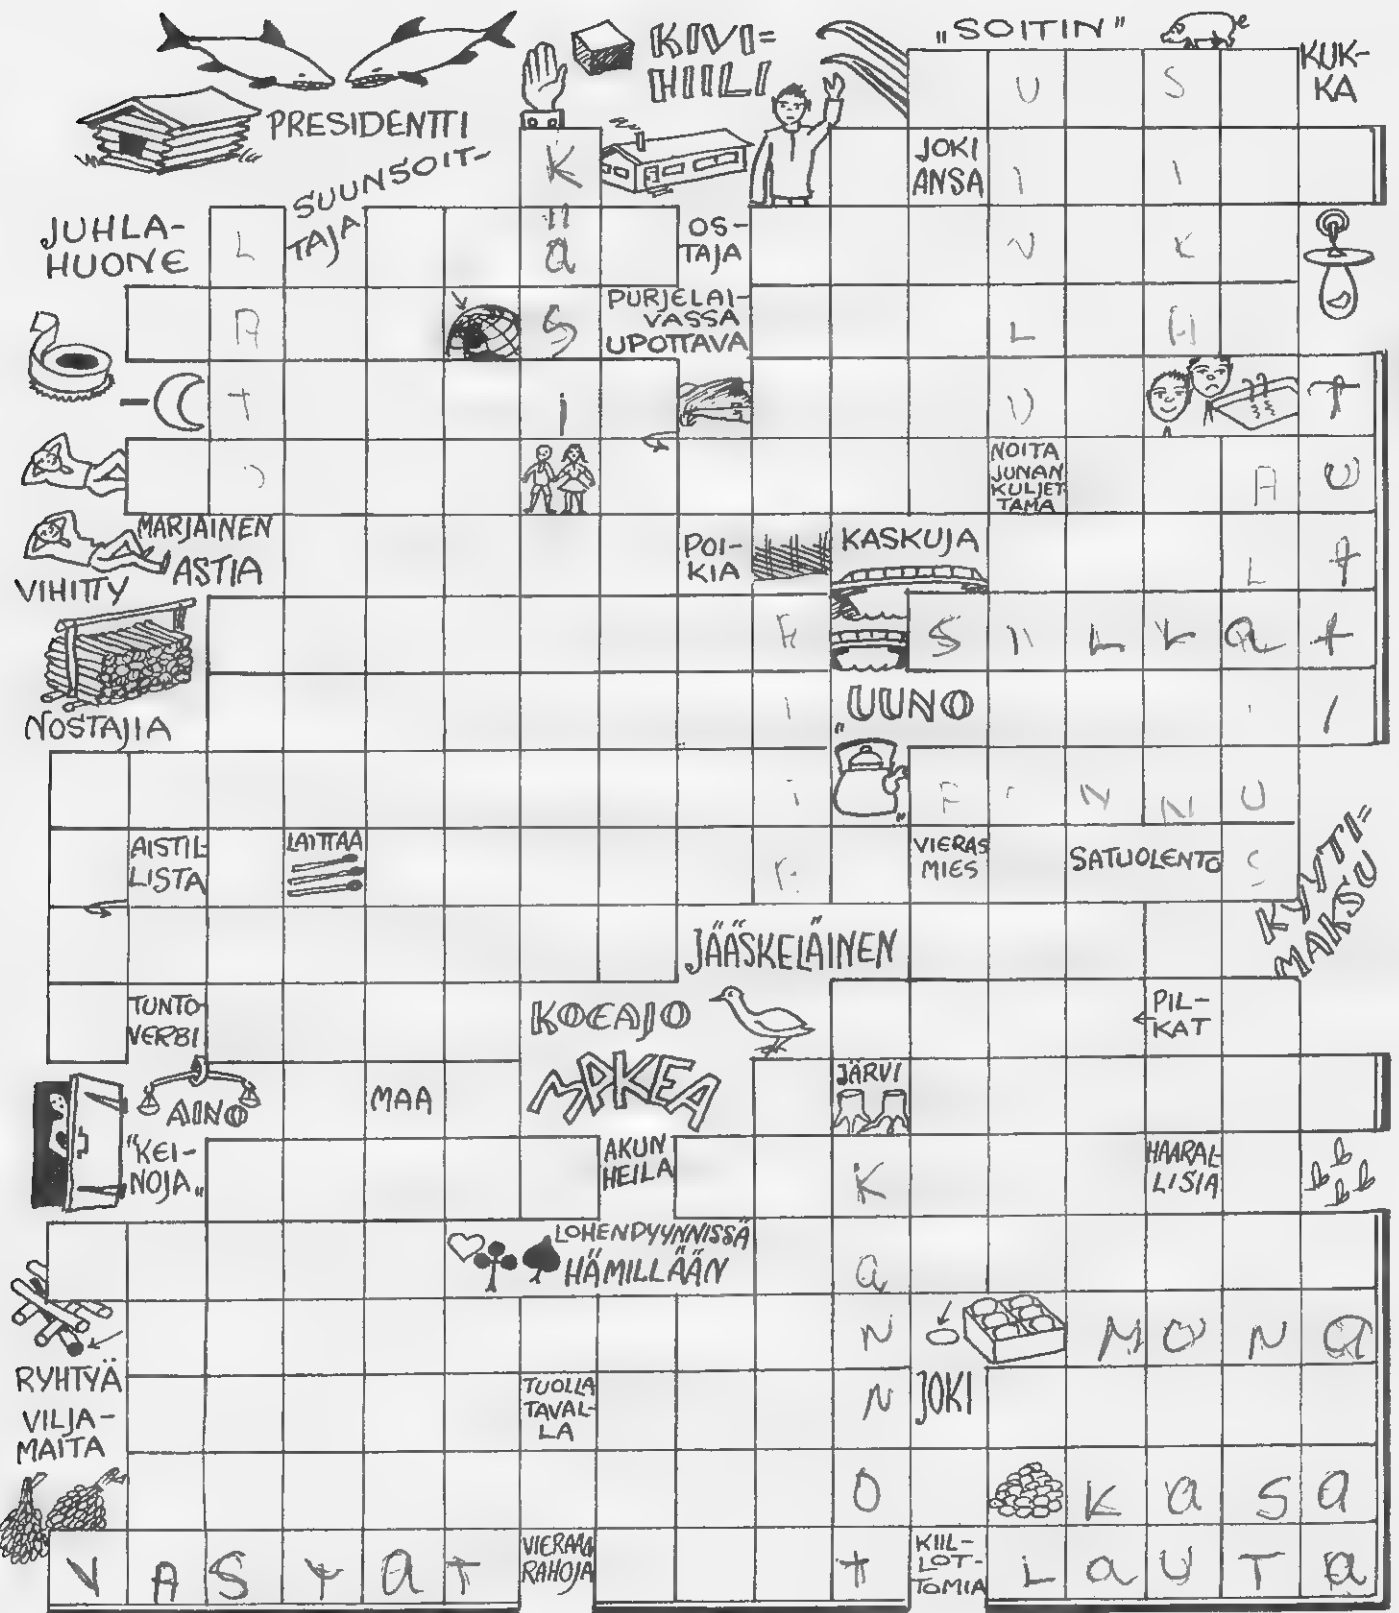 "SOITIN"
KIVI=
HIILI
KUK-
KA
PRESIDENTTI
SUUNSOIT-
TAJA
JOKI
ANSA
JUHLA-
HUONE
OS-
TAJA
PURJELAI-
VASSA
UPOTTAVA
NOITA
JUNAN
KULJET
TAMA
MARJAINEN
ASTIA
VIHITTY
POI-
KIA
KASKUJA
NOSTAJIA
"UUNO
"
AISTIL-
LISTA
LAITTAA
VIERAS
MIES
SATUOLENTO
KYYTI=
MAKSU
JÄÄSKELÄINEN
TUNTO-
VERBI
KOEAJO
PIL-
KAT
MAKEA
JÄRVI
AINO
MAA
"KEI-
NOJA"
AKUN
HEILA
HAARAL-
LISIA
LOHENPYYNNISSÄ
HÄMILLÄÄN
RYHTYÄ
VILJA-
MAITA
TUOLLA
TAVAL-
LA
JOKI
VIERAITA
RAHOJA
KIIL-
LOT-
TOMIA
KÄSI
LATO
TUTTI
SILLAT
PANNU
KANNOT
MUNA
KASA
LAUTA
VASTAT